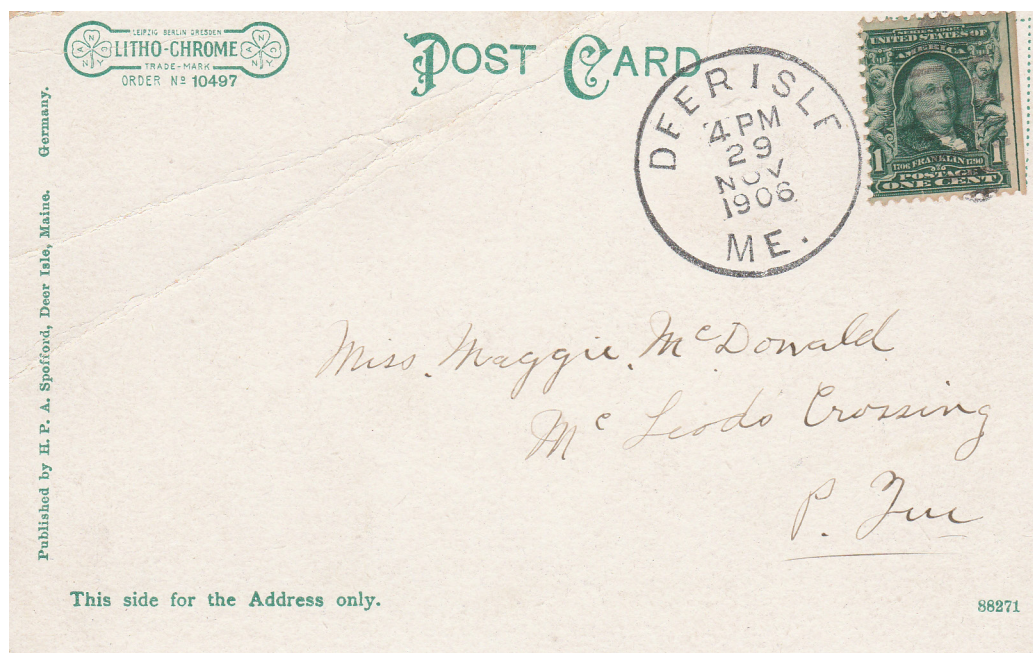 LEIPZIG BERLIN DRESDEN
LITHO-CHROME
TRADE-MARK
ORDER Nº 10497
POST CARD
DEER ISLE
4 PM
29
NOV
1906
ME.
SERIES 1902
UNITED STATES OF
AMERICA
1 1706 FRANKLIN 1790 1
POSTAGE
ONE CENT
Published by H. P. A. Spofford, Deer Isle, Maine. Germany.
Miss. Maggie. McDonald
Mc Leods Crossing
P.
This side for the Address only.
88271